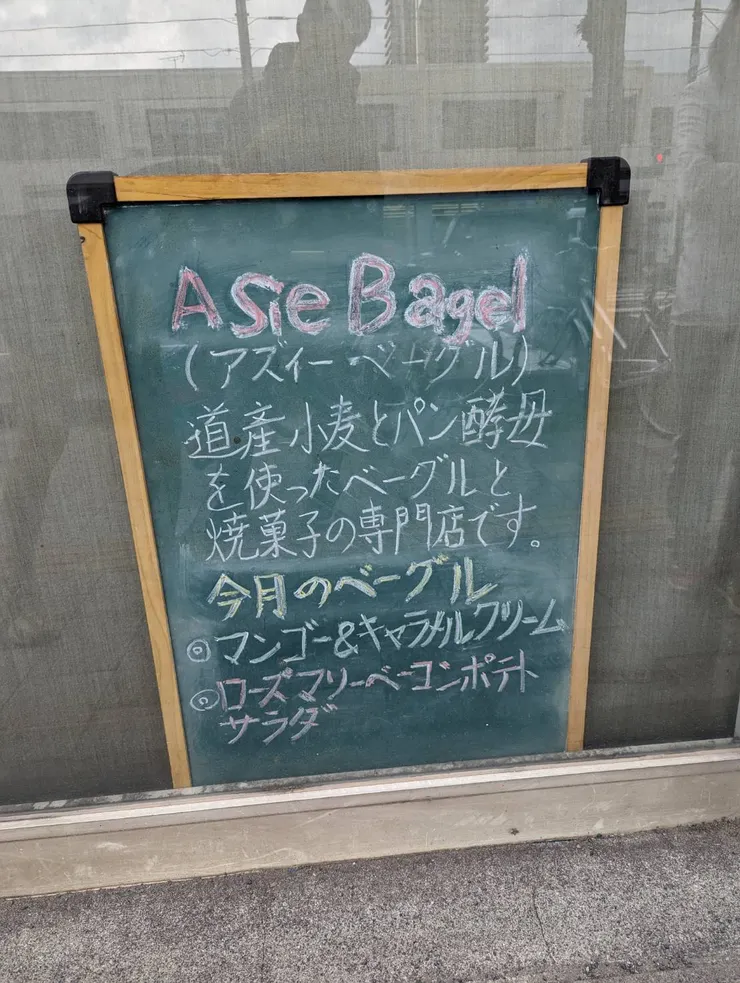 Asie Bagel
(アズィーベーグル)
道産小麦とパン酵母
を使ったベーグルと
焼菓子の専門店です。
今月のベーグル
◎マンゴー&キャラメルクリーム
◎ローズマリーベーコンポテト
サラダ